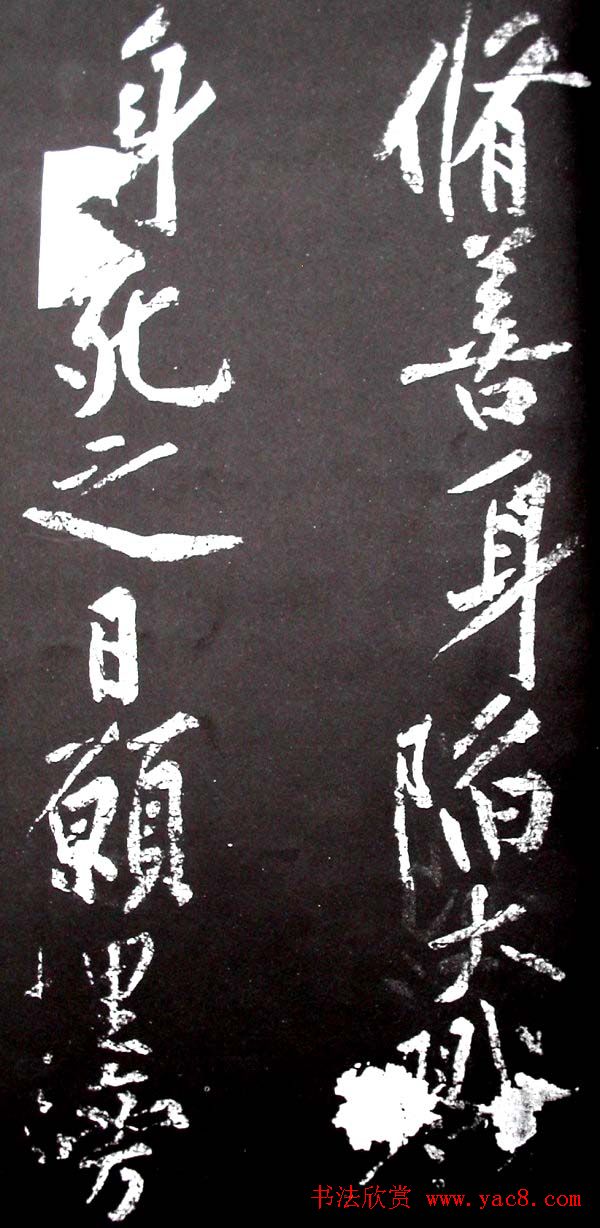 脩善身陷大戮
身死之日願埋滂
书法欣赏 www.yac8.com